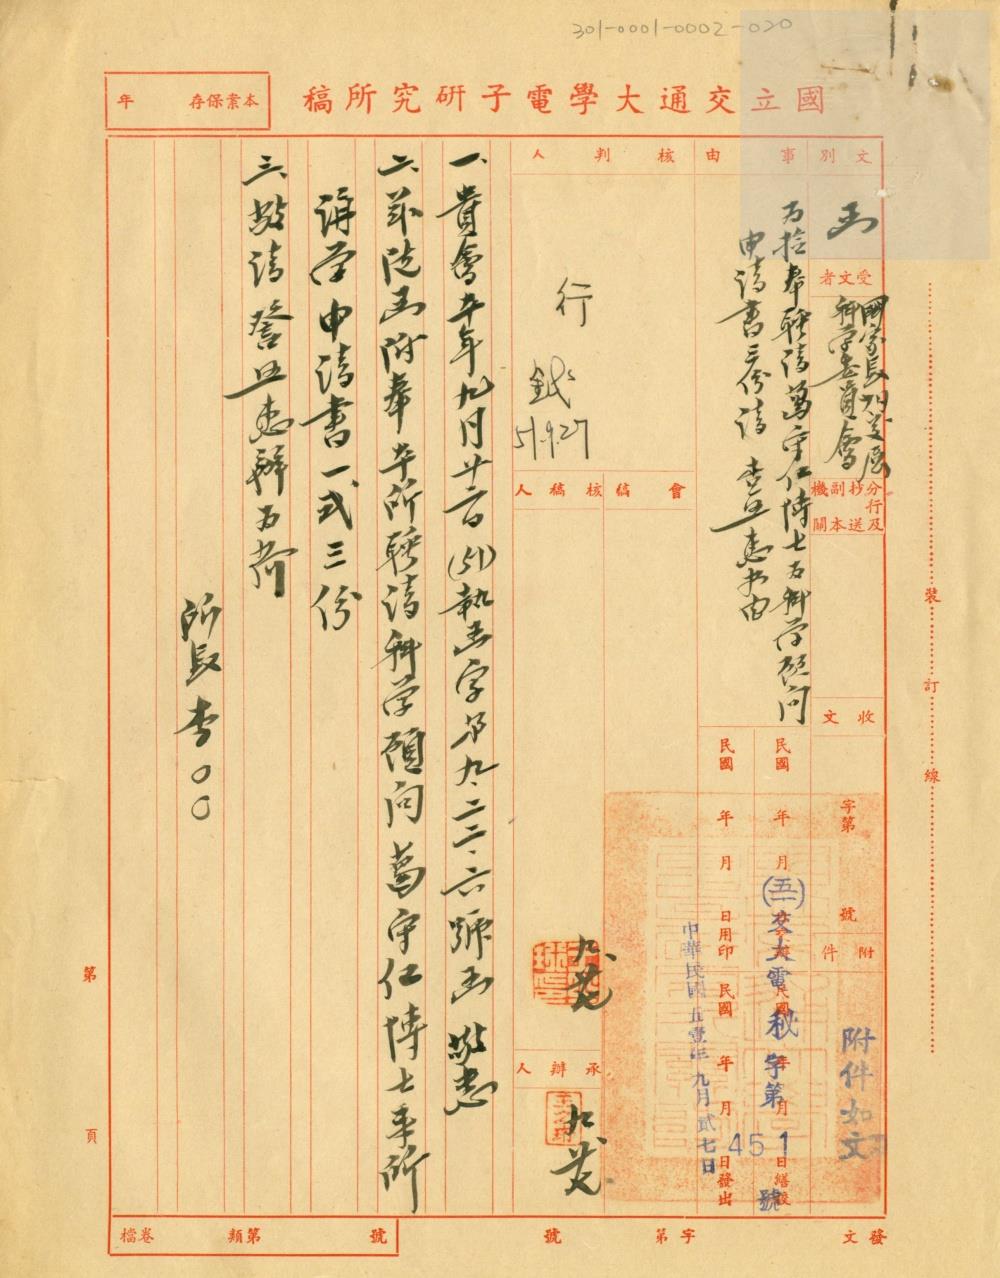 301-0001-0002-020
國立交通大學電子研究所稿
本案保存 年
文別
函
受文者
國家長期發展
科學委員會
分行及
抄送
副本
機關
收文
字第 號
附件
附件如文
事由
為檢奉聘請葛守仁博士為科學顧問
申請書三份請 查照惠辦由
核判人
行
51.9.27
會稿
核稿人
承辦人
民國 年 月 日繕校
民國 年 月 日用印
民國 年 月 日發出
(五一)交大電秘字第451號
中華民國五壹年九月貳七日
一、貴會五一年九月廿六日(51)執函字第九二二六號函敬悉
二、茲隨函附奉本所聘請科學顧問葛守仁博士來所
講學申請書一式三份
三、敬請 詧照惠辦為荷
所長 李○○
裝 訂 線
第 頁
發文 字第 號
檔卷 第 類 號